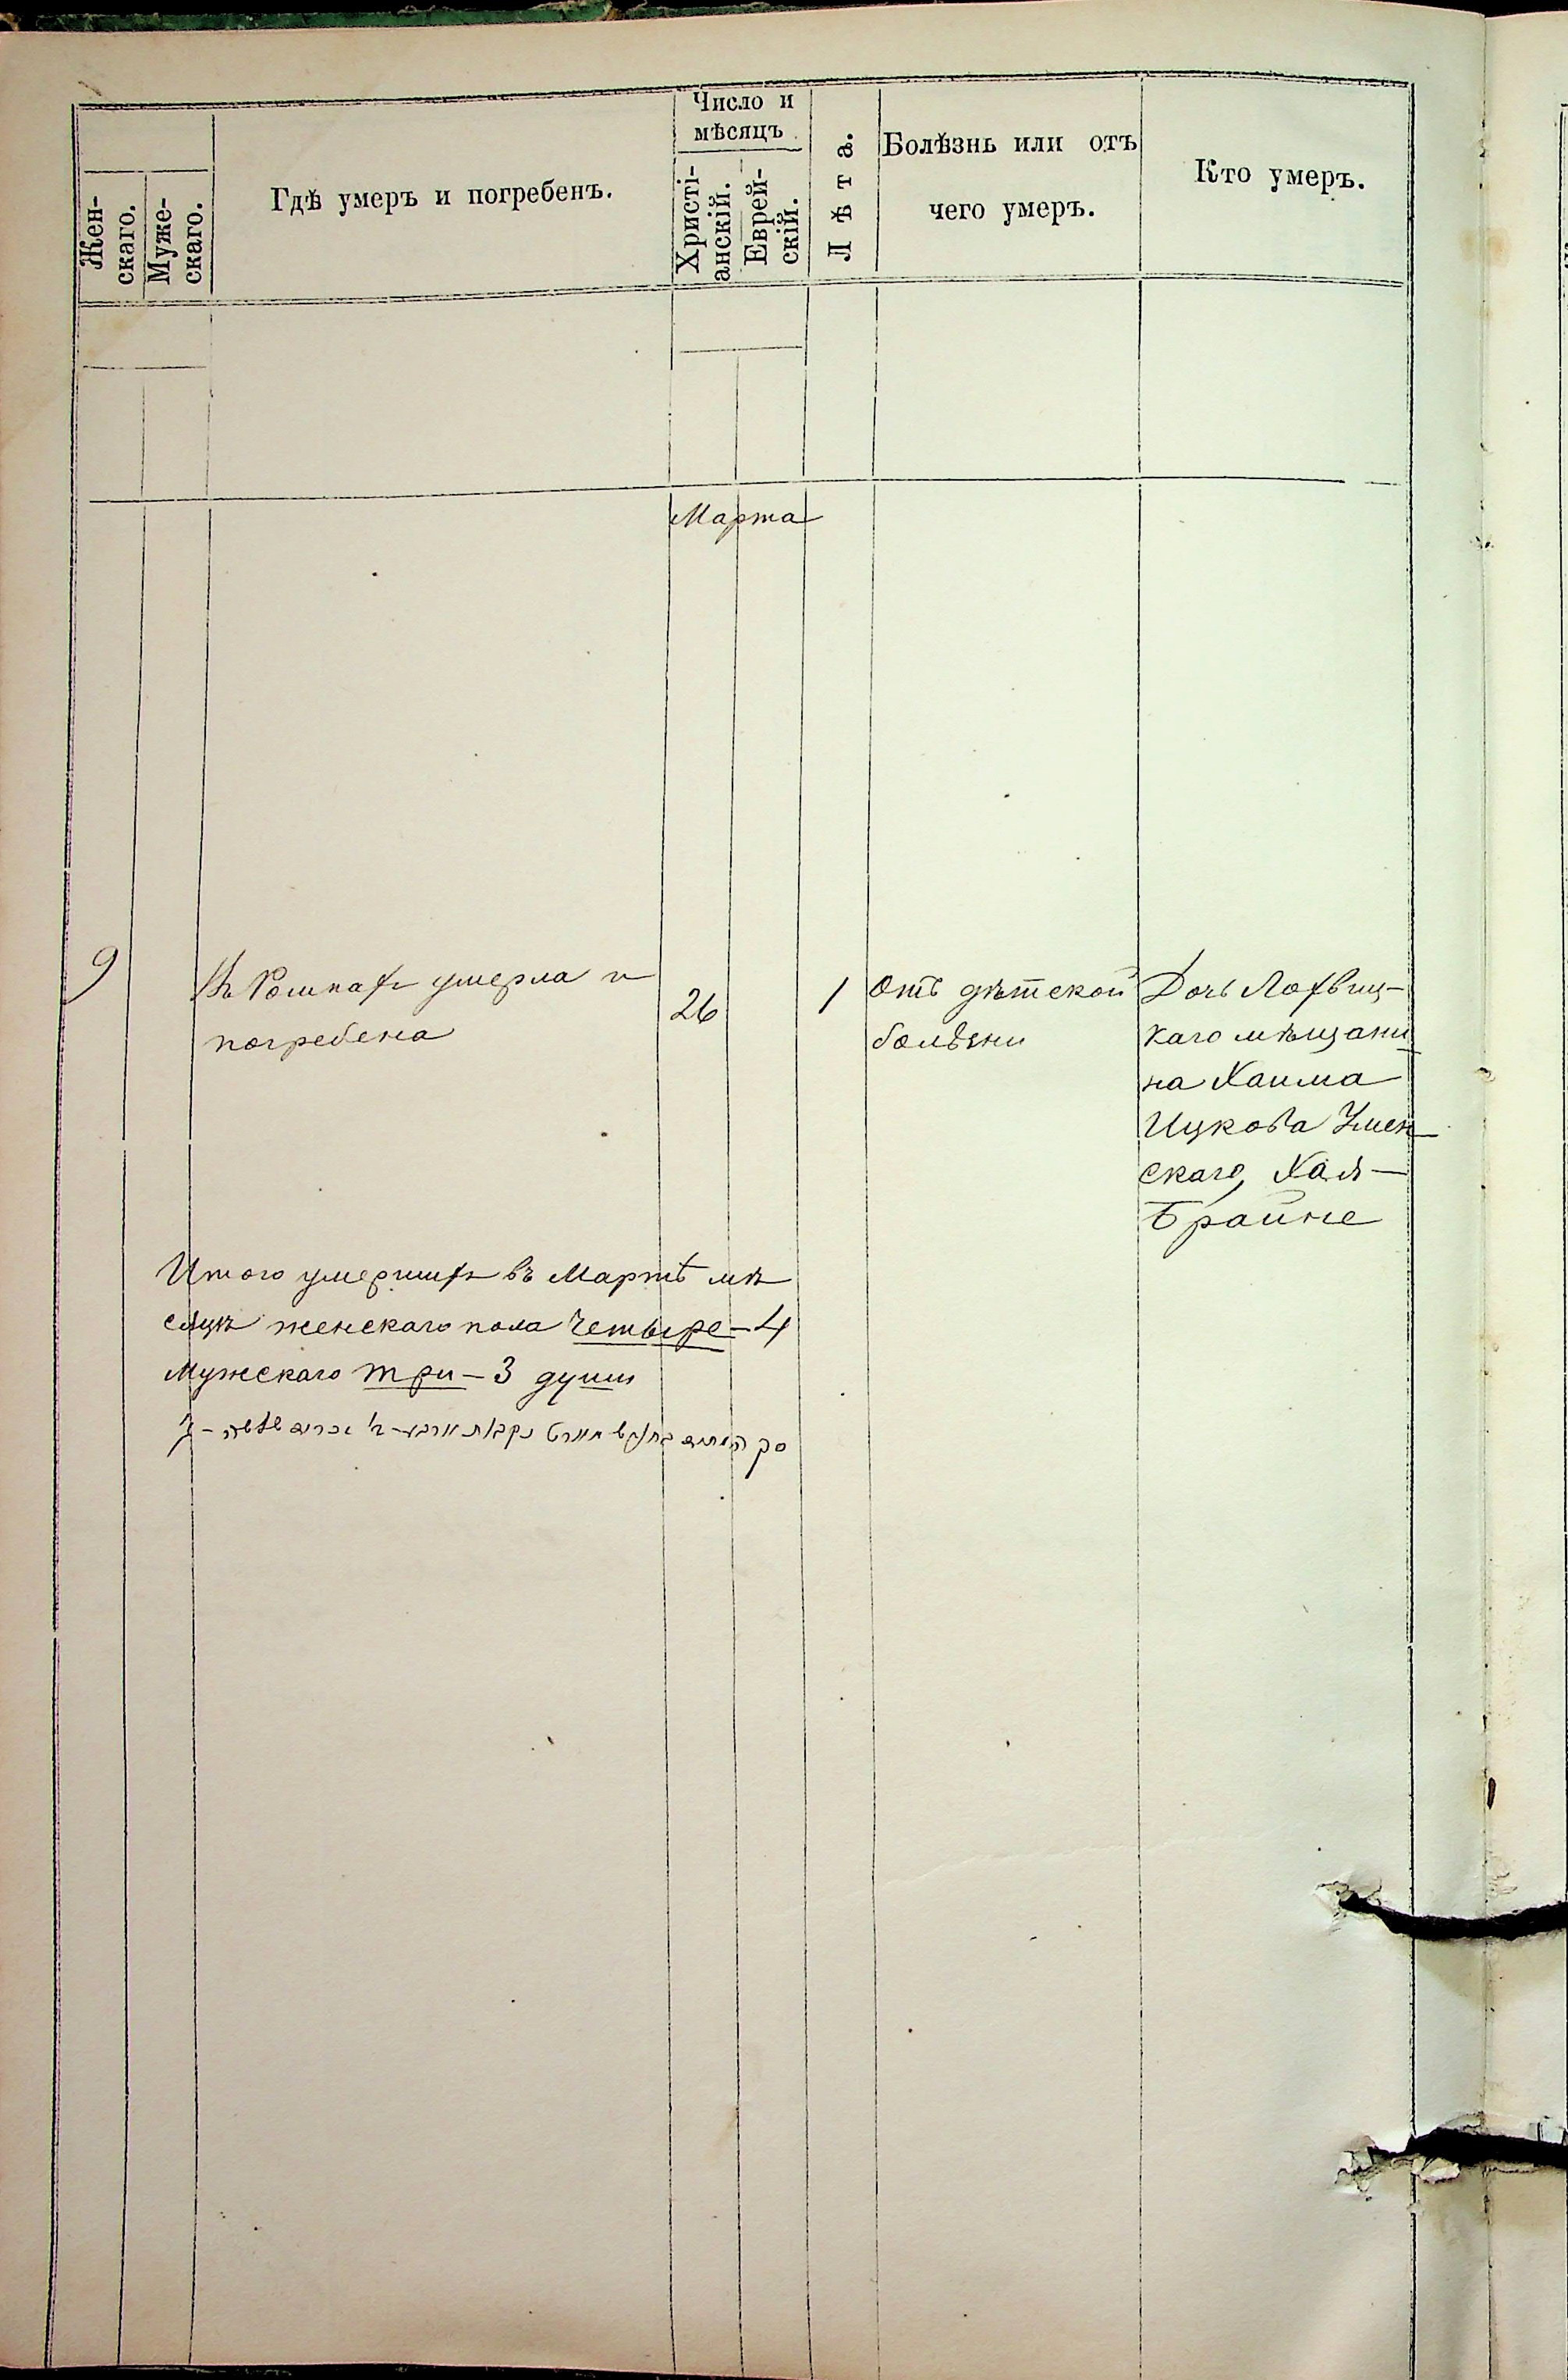 Жен-
скаго.
Муже-
скаго.
Гдѣ умеръ и погребенъ.
Число и
мѣсяцъ
Христі-
анскій.
Еврей-
скій.
Лѣта.
Болѣзнь или отъ
чего умеръ.
Кто умеръ.
Марта
9
Въ Ромнахъ умерла и
погребена
26
1
Отъ дѣтской
болѣзни
Дочь Лохвиц-
каго мѣщани
на Хаима
Ицкова
скаго, Хая-
Брайне
Итого умершихъ въ Мартѣ мѣ
сяцѣ женскаго пола Четыре-4
Мужескаго три-3 души